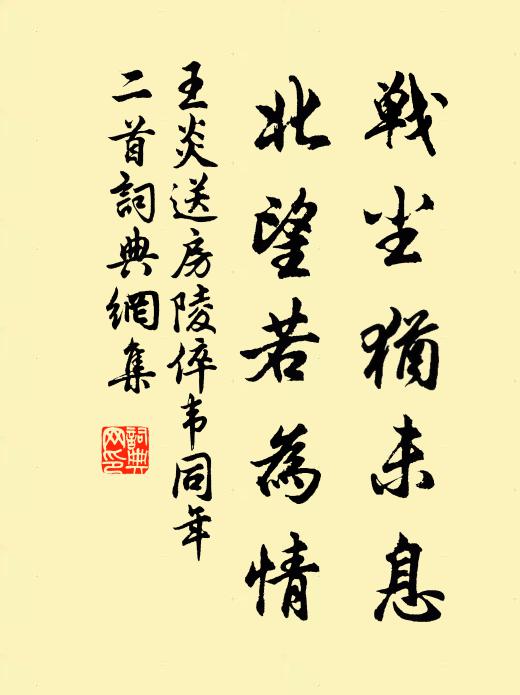 戦尘猶未息
北望若為情
王炎送房陵倅韦同年
二首詞典網集
詞典
网印